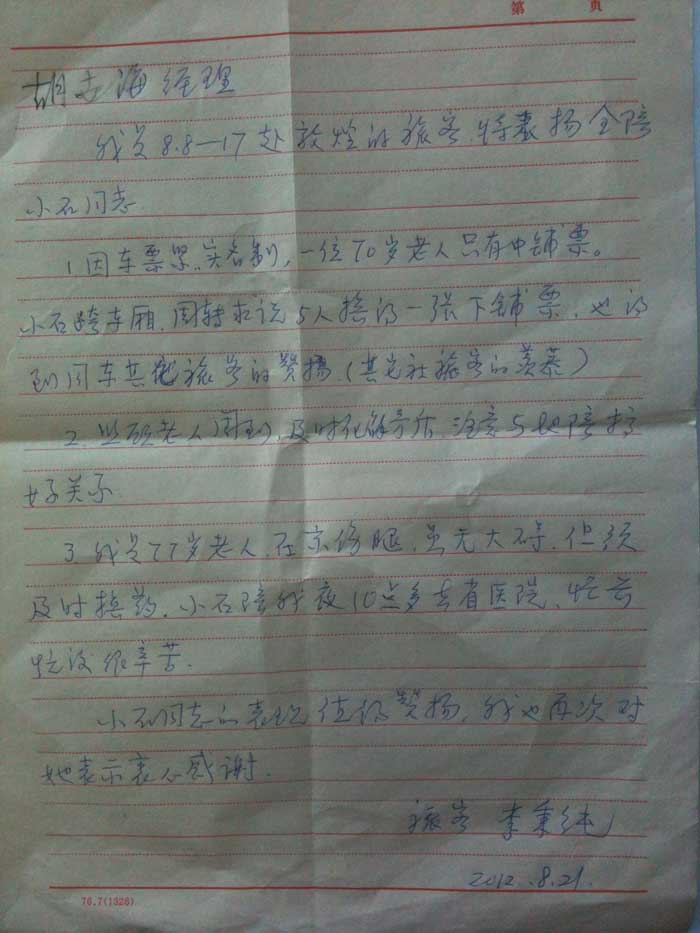 第 页
胡志海经理
我是8.8—17赴敦煌的旅客,特表扬全陪
小石同志.
1因车票紧,实名制,一位70岁老人只有中铺票。
小石跨车厢,周转求说5人换得一张下铺票,也得
到同车其他旅客的赞扬.(其它社旅客的羡慕)
2.照顾老人周到,及时化解矛盾,注意与地陪搞
好关系.
3.我是77岁老人,在京伤腿,虽无大碍,但须
及时换药,小石陪我夜10点多去省医院,忙前
忙后很辛苦.
小石同志的表现值得赞扬,我也再次对
她表示衷心感谢.
旅客 李秉纯
2012.8.21.
76.7(1328)